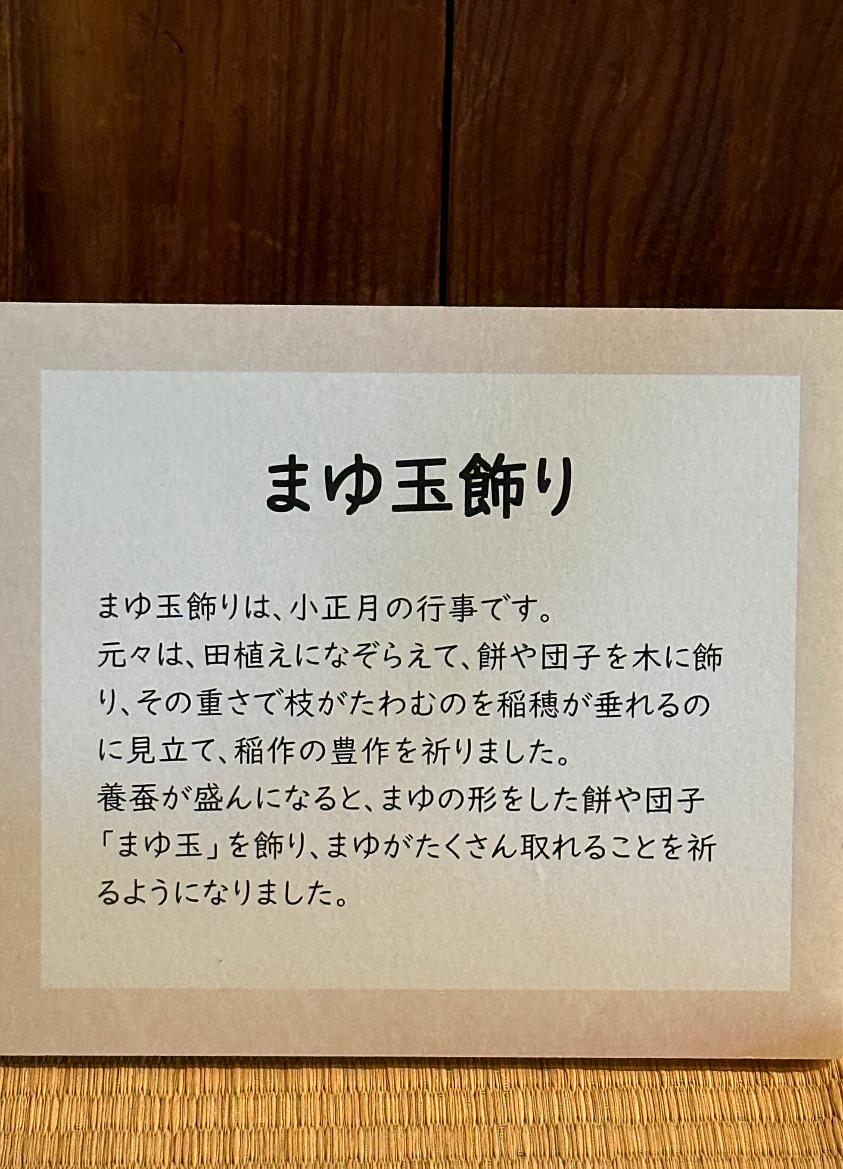 まゆ玉飾り
まゆ玉飾りは、小正月の行事です。
元々は、田植えになぞらえて、餅や団子を木に飾
り、その重さで枝がたわむのを稲穂が垂れるの
に見立て、稲作の豊作を祈りました。
養蚕が盛んになると、まゆの形をした餅や団子
「まゆ玉」を飾り、まゆがたくさん取れることを祈
るようになりました。